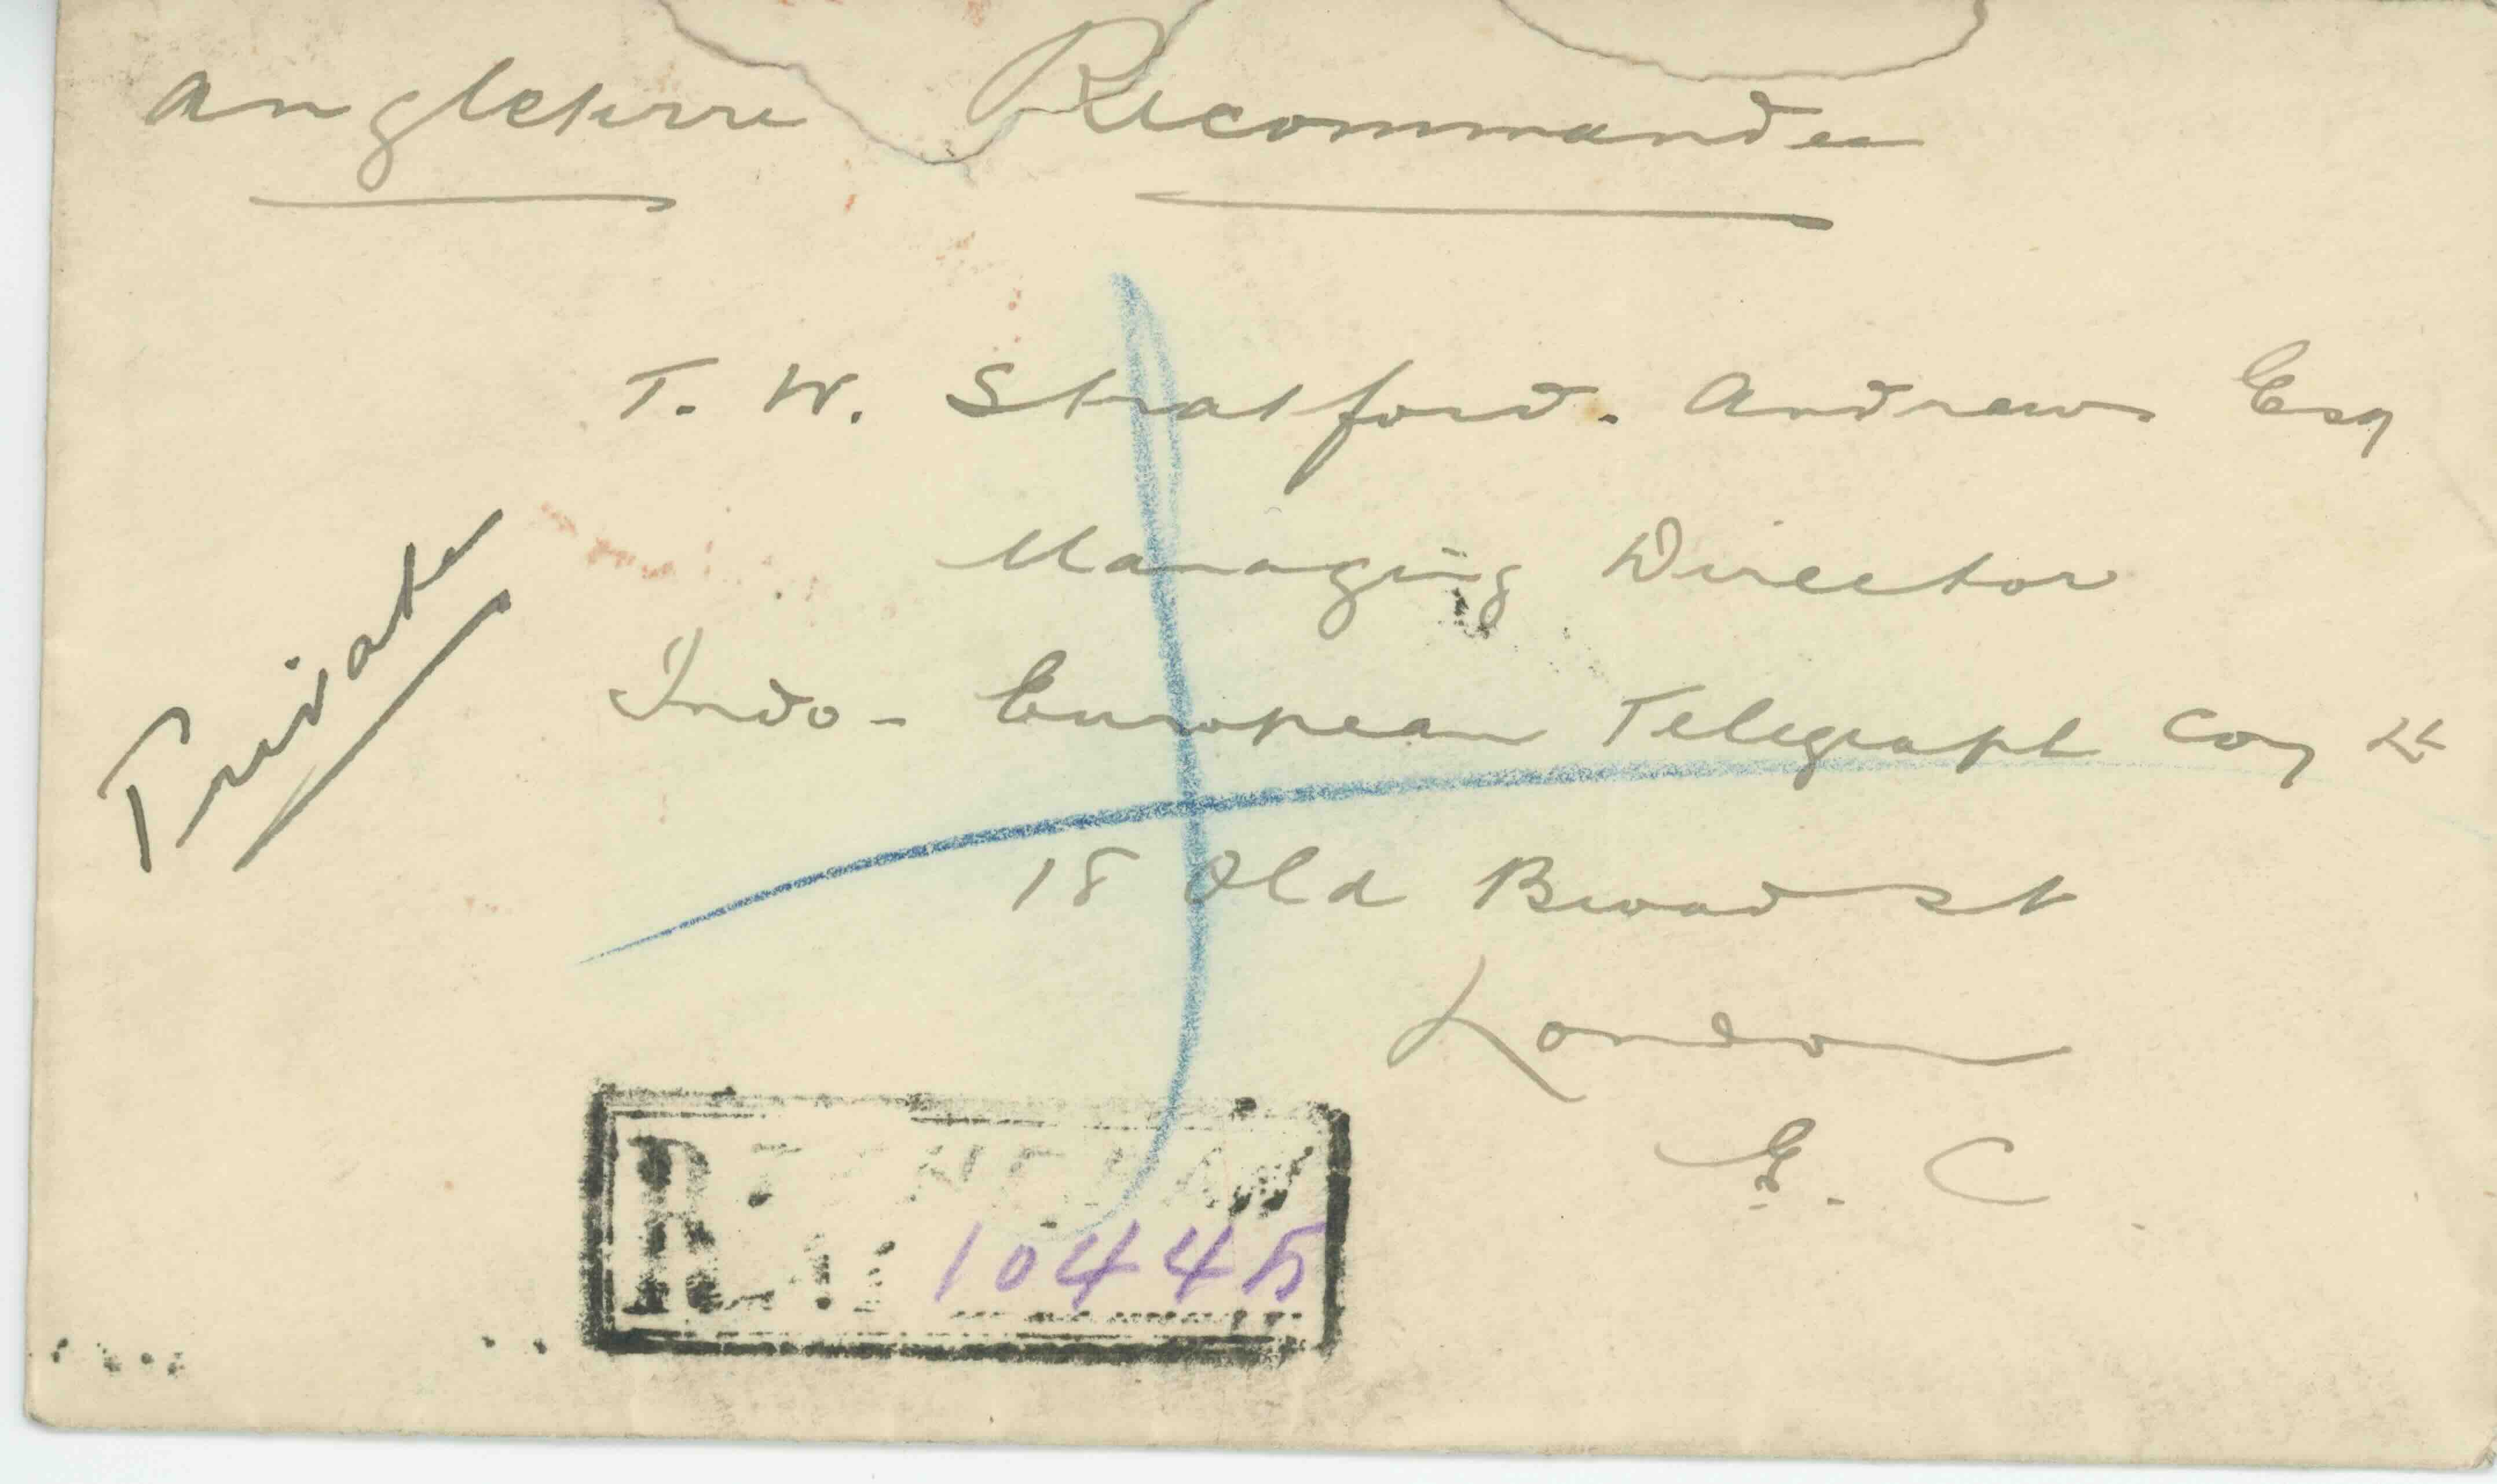 Angleterre Recommandee
T. W. Stratford. Andrews Esq
Managing Director
Private
Indo-European Telegraph Coy Ld
18 Old Broad St
London
E. C
R
10445